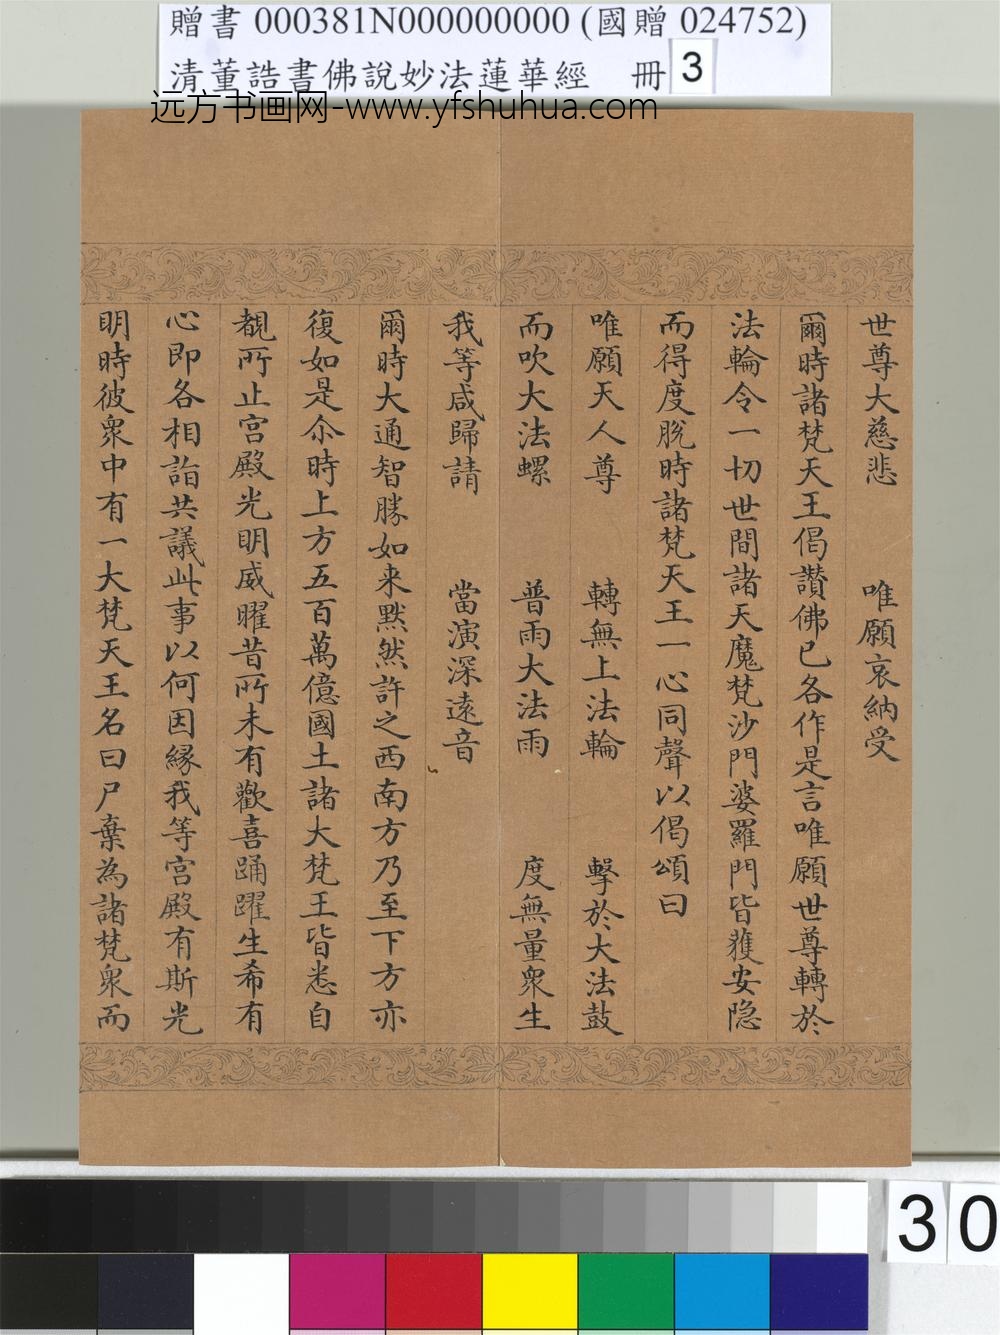 贈書 000381N000000000 (國贈 024752)
清董誥書佛說妙法蓮華經 冊 3
远方书画网-www.yfshuhua.com
世尊大慈悲 唯願哀納受
爾時諸梵天王偈讚佛已各作是言唯願世尊轉於
法輪令一切世間諸天魔梵沙門婆羅門皆獲安隐
而得度脫時諸梵天王一心同聲以偈頌曰
唯願天人尊 轉無上法輪 擊於大法鼓
而吹大法螺 普雨大法雨 度無量衆生
我等咸歸請 當演深遠音
爾時大通智勝如来默然許之西南方乃至下方亦
復如是尒時上方五百萬億國土諸大梵王皆悉自
覩所止宮殿光明威曜昔所未有歡喜踊躍生希有
心即各相詣共議此事以何因緣我等宮殿有斯光
明時彼衆中有一大梵天王名曰尸棄為諸梵衆而
30